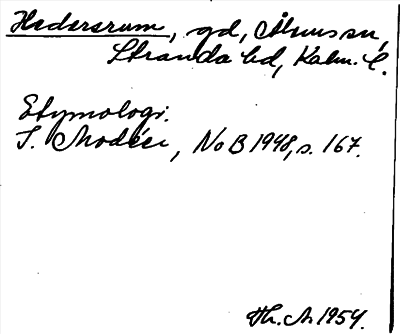 Hedersrum, gd, Ålems sn,
Stranda hd, Kalm. l.
Etymologi.
I. Modéer, NoB 1948, s. 167.
Th. A. 1954.